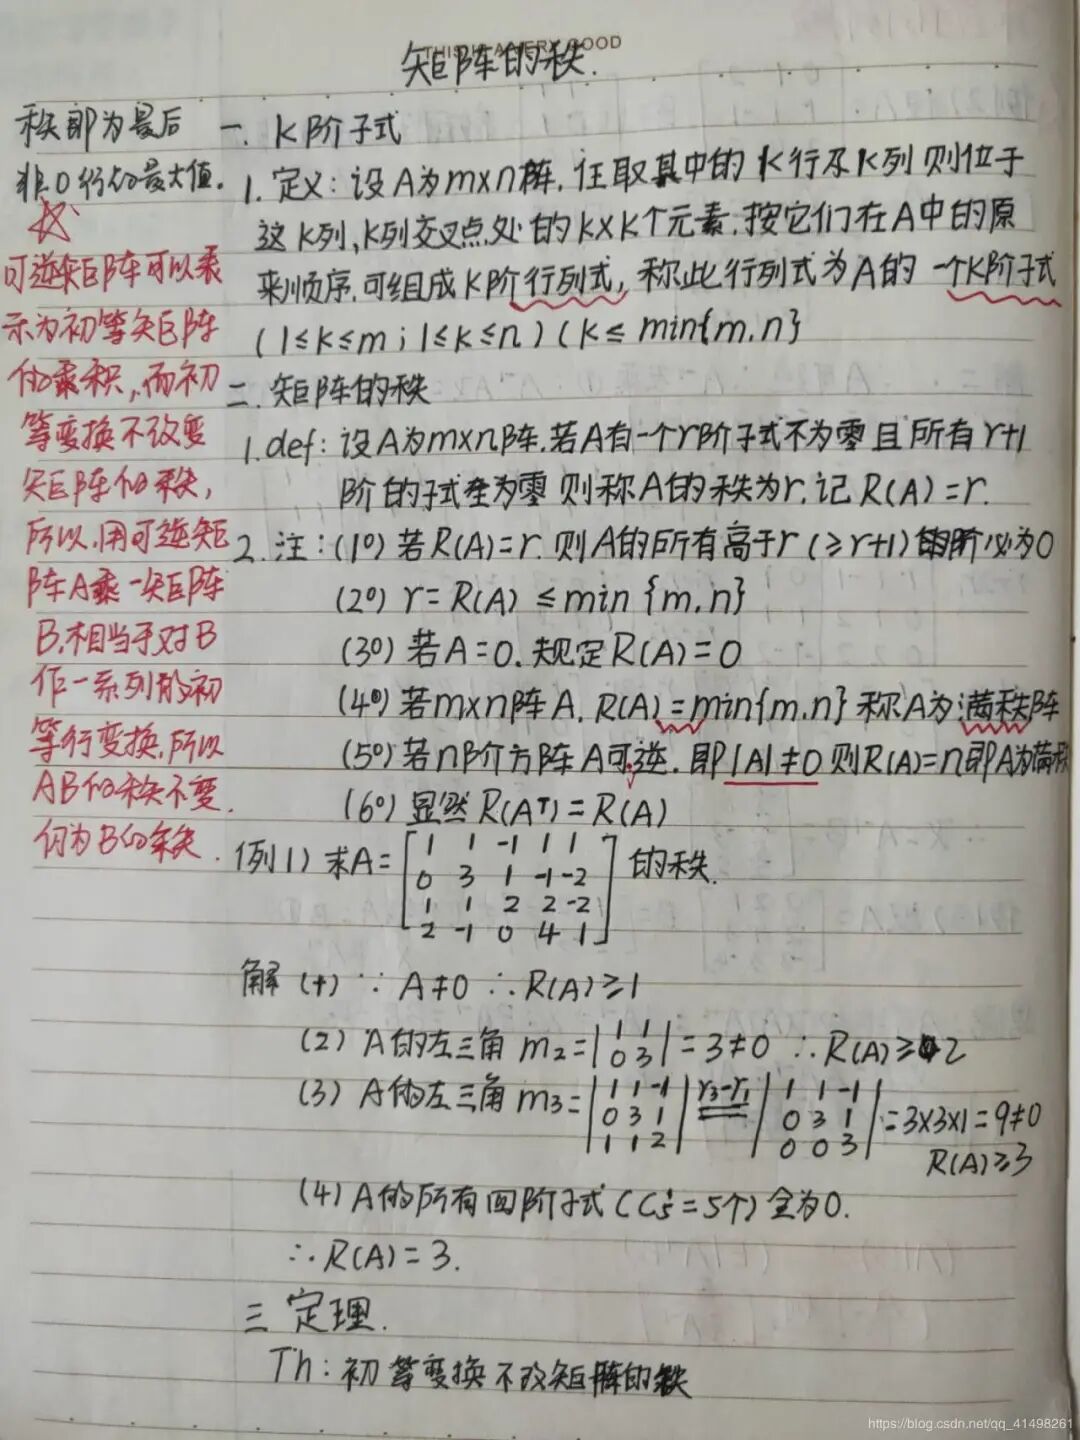 THIS IS A VERY GOOD
矩阵的秩.
秩即为最后
非0行的最大值.
可逆矩阵可以表
示为初等矩阵
的乘积,而初
等变换不改变
矩阵的秩,
所以,用可逆矩
阵A乘一矩阵
B.相当于对B
作一系列的初
等行变换,所以
AB的秩不变.
仍为B的秩.
一. K阶子式
1. 定义: 设A为m×n阵. 任取其中的K行及K列则位于
这K列,K列交叉点处的K×K个元素.按它们在A中的原
来顺序.可组成K阶行列式, 称此行列式为A的一个K阶子式
(1≤K≤m;1≤K≤n)(K≤min{m.n}
二. 矩阵的秩
1.def: 设A为m×n阵.若A有一个r阶子式不为零且所有r+1
阶的子式全为零则称A的秩为r.记R(A)=r.
2.注: (1°)若R(A)=r.则A的所有高于r(≥r+1)的阶必为0
(2°) r=R(A)≤min{m.n}
(3°)若A=0.规定R(A)=0
(4°)若m×n阵A.R(A)=min{m.n}称A为满秩阵
(5°)若n阶方阵A可逆.即|A|≠0则R(A)=n即A为满秩
(6°)显然R(Aᵀ)=R(A)
例1)求A=[1 1 -1 1 1
0 3 1 -1 -2
1 1 2 2 -2
2 -1 0 4 1]的秩.
解(1) ∵ A≠0 ∴R(A)≥1
(2) A的左三角 m₂=|1 1
0 3|=3≠0 ∴R(A)≥2
(3) A的左三角 m₃=|1 1 -1
0 3 1
1 1 2| r₃-r₁ |1 1 -1
0 3 1
0 0 3|=3×3×1=9≠0
R(A)≥3
(4)A的所有四阶子式(=5个)全为0.
∴R(A)=3.
三 定理.
Th:初等变换不改矩阵的秩
https://blog.csdn.net/qq_41498261